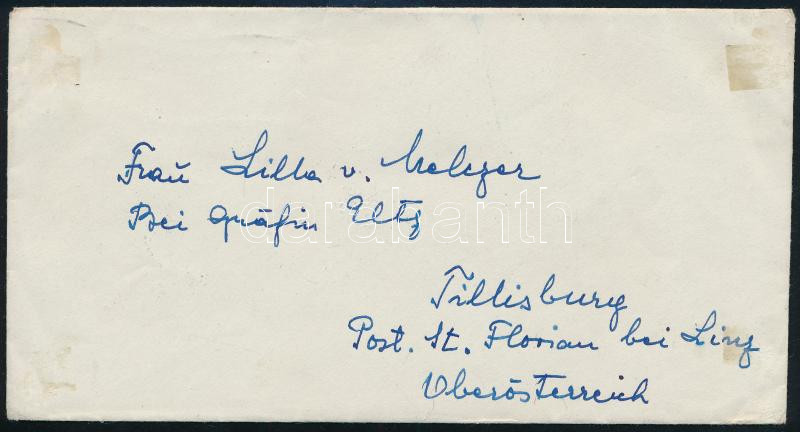 Frau Lilla v. Melczer
Bei Gräfin Eltz
darabanth
Tillisburg
Post. St. Florian bei Linz
Oberösterreich